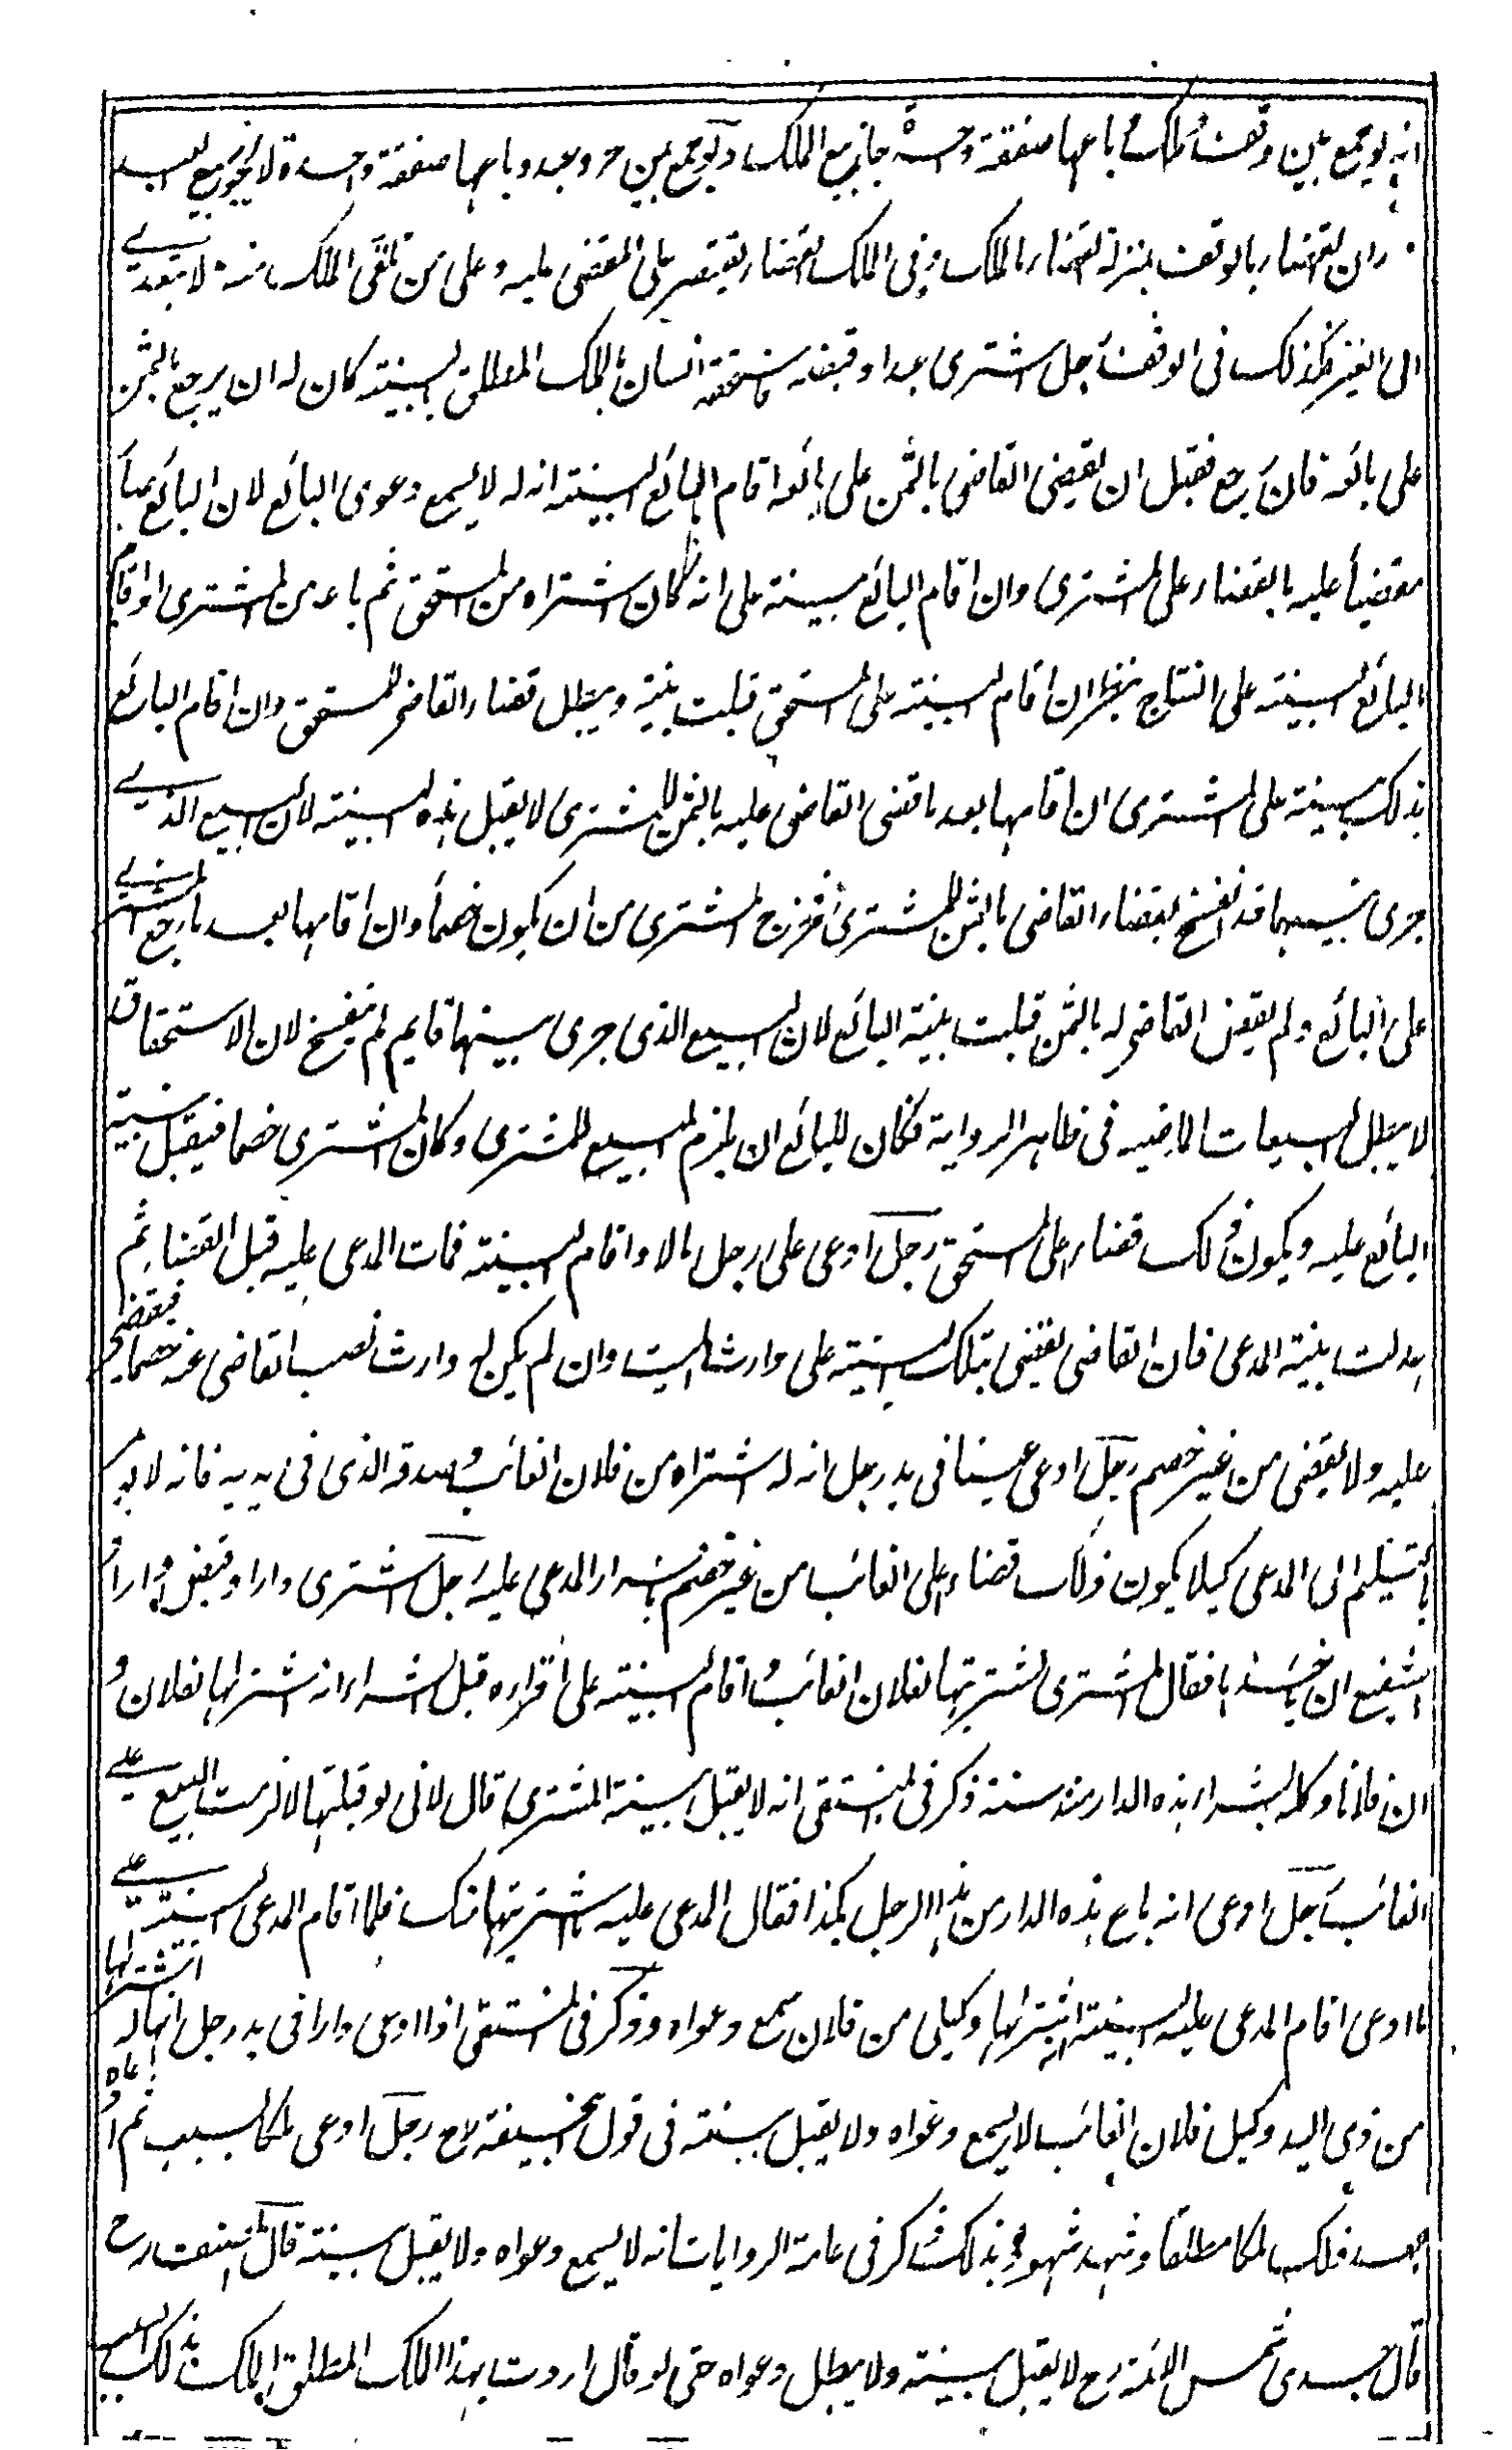 انه لو جمع بين وقف وملك وباعهما صفقة واحدة جاز بيع الملك ولو جمع بين حر وعبد وباعهما صفقة واحدة لا يجوز بيع العبد
وان القضاء بالوقف بمنزلة القضاء بالملك وفى الملك القضاء يقتصر على المقضى عليه وعلى من تلقى الملك منه لا يتعدى
الى الغير فكذلك فى الوقف رجل اشترى عبدا وقبضه فاستحقه انسان بالملك المطلق بالبينة كان له ان يرجع بالثمن
على بائعه فان رجع فقبل ان يقضى القاضى بالثمن على بائعه اقام البائع البينة انه له لا يسمع دعوى البائع لان البائع صار
مقضيا عليه بالقضاء على المشترى وان اقام البائع بينة على انه كان اشتراه من المستحق ثم باعه من المشترى او اقام
البائع البينة على النتاج ينظر ان اقام البينة على المستحق قبلت بينته ويبطل قضاء القاضى للمستحق وان اقام البائع
بذلك بينة على المشترى ان اقامها بعد ما قضى القاضى عليه بالثمن للمشترى لا يقبل هذه البينة لان البيع الذى
جرى بينهما قد انفسخ بقضاء القاضى بالثمن للمشترى فخرج المشترى من ان يكون خصما وان اقامها بعد ما رجع المشترى
على البائع ولم يقض القاضى له بالثمن قبلت بينة البائع لان البيع الذى جرى بينهما قايم لم ينفسخ لان الاستحقاق
لا يبطل البيعات الماضيه فى ظاهر الرواية فكان للبائع ان يلزم المبيع للمشترى وكان المشترى خصما فيقبل بينة
البائع عليه ويكون ذلك قضاء على المستحق رجل ادعى على رجل مالا واقام البينة فمات المدعى عليه قبل القضاء ثم
عدلت بينة المدعى فان القاضى يقضى بتلك البينة على وارث الميت وان لم يكن له وارث نصب القاضى عنه خصما فيقضى
عليه ولا يقضى من غير خصم رجل ادعى عينا فى يد رجل انه له اشتراه من فلان الغائب وصدقه الذى فى يديه فانه لا يومر
بالتسليم الى المدعى كيلا يكون ذلك قضاء على الغائب من غير خصم باقرار المدعى عليه رجل اشترى دارا وقبض واراد
الشفيع ان ياخذها فقال المشترى اشتريتها لفلان الغائب واقام البينة على اقراره قبل الشراء انه اشتراها لفلان و
ان فلانا وكله بشراء هذه الدار منذ سنة ذكر فى المنتقى انه لا يقبل بينة المشترى قال لانى لو قبلتها لالزمت البيع على
الغائب رجل ادعى انه باع هذه الدار من هذا الرجل بكذا فقال المدعى عليه ما اشتريتها منك فلما اقام المدعى البينة على
ما ادعى اقام المدعى عليه البينة انه اشتراها وكيلى من فلان سمع دعواه وذكر فى المنتقى اذا ادعى دارا فى يد رجل انها له اشتراها
من ذى اليد وكيل فلان الغائب لا يسمع دعواه ولا يقبل بينته فى قول ابيحنيفة رح رجل ادعى ملكا بسبب ثم ادعاه
بعد ذلك ملكا مطلقا وشهد شهوده بذلك ذكر فى عامة الروايات انه لا يسمع دعواه ولا يقبل بينته قال المصنف رح
قال جدى شمس الائمة رح لا يقبل بينته ولا يبطل دعواه حتى لو قال اردت بهذا الملك المطلق الملك بذلك السبب